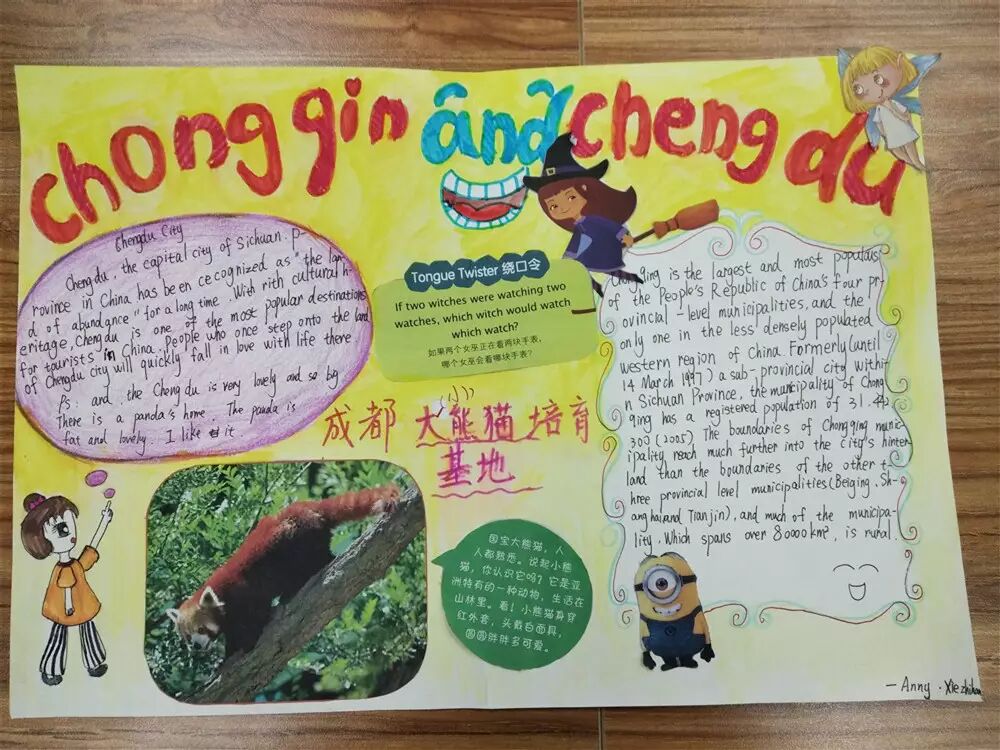 chongqin and chengdu
Chengdu City
Chengdu, the capital city of Sichuan. P-
rovince in China has been cecognized as "the lan
d of abundance" for a long time. With rith cultural h-
eritage, Chengdu is one of the most popular destinations
for tourists in China. People who once step onto the land
of Chengdu city will quickly fall in love with life there.
Ps: and the Chengdu is very lovely and so big
There is a panda's home. The panda is
fat and lovely. I like it.
Tongue Twister 绕口令
If two witches were watching two
watches, which witch would watch
which watch?
如果两个女巫正在看两块手表，
哪个女巫会看哪块手表？
成都 大(小)熊猫培育
基地
国宝大熊猫，人
人都熟悉。说起小熊
猫，你认识它吗？它是亚
洲特有的一种动物，生活在
山林里。看！小熊猫身穿
红外套，头戴白面具，
圆圆胖胖多可爱。
qing is the largest and most populous
of the People's Republic of China's four pr-
ovincial-level municipalities, and the
only one in the less densely populated
western region of China. Formerly (until
14 March 1997) a sub-provincial city withi
n Sichuan Province, the municipality of Chong
qing has a registered population of 31.442
300 (2005) The boundaries of Chongqing munic-
ipality reach much further into the city's hinter
land than the boundaries of the other t-
hree provincial level municipalities (Beiging, Sh-
anghai and Tianjin), and much of the municipa-
lity, Which spans over 80000km², is rural.
- Anny · Xiezhihan